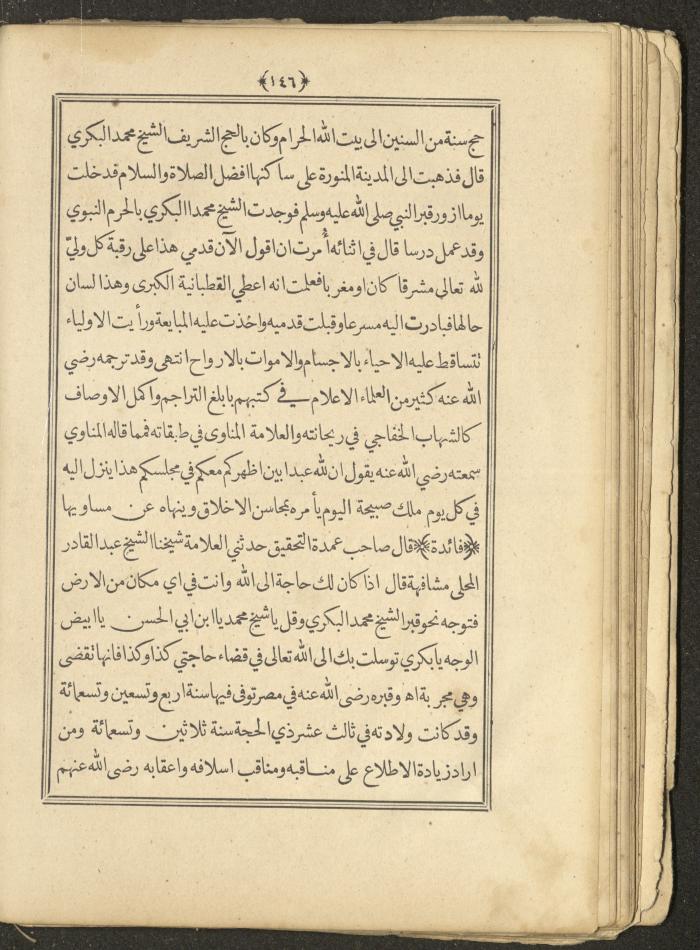 ﴿١٤٦﴾
حج سنة من السنين الى بيت الله الحرام وكان بالحج الشريف الشيخ محمد البكري
قال فذهبت الى المدينة المنورة على ساكنها افضل الصلاة والسلام قدخلت
يوما ازور قبر النبي صلى الله عليه وسلم فوجدت الشيخ محمدا البكري بالحرم النبوي
وقد عمل درسا قال في اثنائه أُمرت ان اقول الآن قدمي هذا على رقبة كل وليّ
لله تعالى مشرقا كان او مغربا فعلمت انه اعطي القطبانية الكبرى وهذا لسان
حالها فبادرت اليه مسرعا وقبلت قدميه واخذت عليه المبايعة ورأيت الاولياء
تتساقط عليه الاحياء بالاجسام والاموات بالارواح انتهى وقد ترجمه رضي
الله عنه كثير من العلماء الاعلام في كتبهم بابلغ التراجم واكمل الاوصاف
كالشهاب الخفاجي في ريحانته والعلامة المناوى في طبقاته فمما قاله المناوي
سمعته رضي الله عنه يقول ان لله عبدا بين اظهركم معكم في مجلسكم هذا ينزل اليه
في كل يوم ملك صبيحة اليوم يأمره بمحاسن الاخلاق وينهاه عن مساويها
﴿فائدة﴾ قال صاحب عمدة التحقيق حدثني العلامة شيخنا الشيخ عبد القادر
المحلى مشافهة قال اذا كان لك حاجة الى الله وانت في اي مكان من الارض
فتوجه نحو قبر الشيخ محمد البكري وقل يا شيخ محمد يا ابن ابي الحسن يا ابيض
الوجه يا بكري توسلت بك الى الله تعالى في قضاء حاجتي كذا وكذا فانها تقضى
وهي مجربة اه وقبره رضى الله عنه في مصر توفى فيها سنة اربع وتسعين وتسعمائة
وقد كانت ولادته في ثالث عشر ذي الحجة سنة ثلاثين وتسعمائة ومن
اراد زيادة الاطلاع على مناقبه ومناقب اسلافه واعقابه رضى الله عنهم